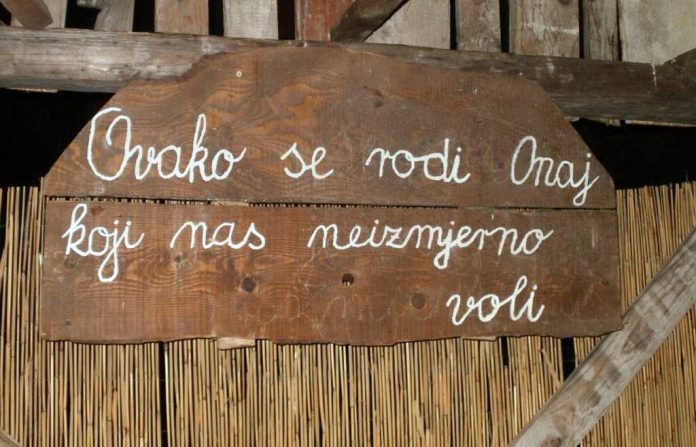 Ovako se rodi Onaj
koji nas neizmjerno
voli